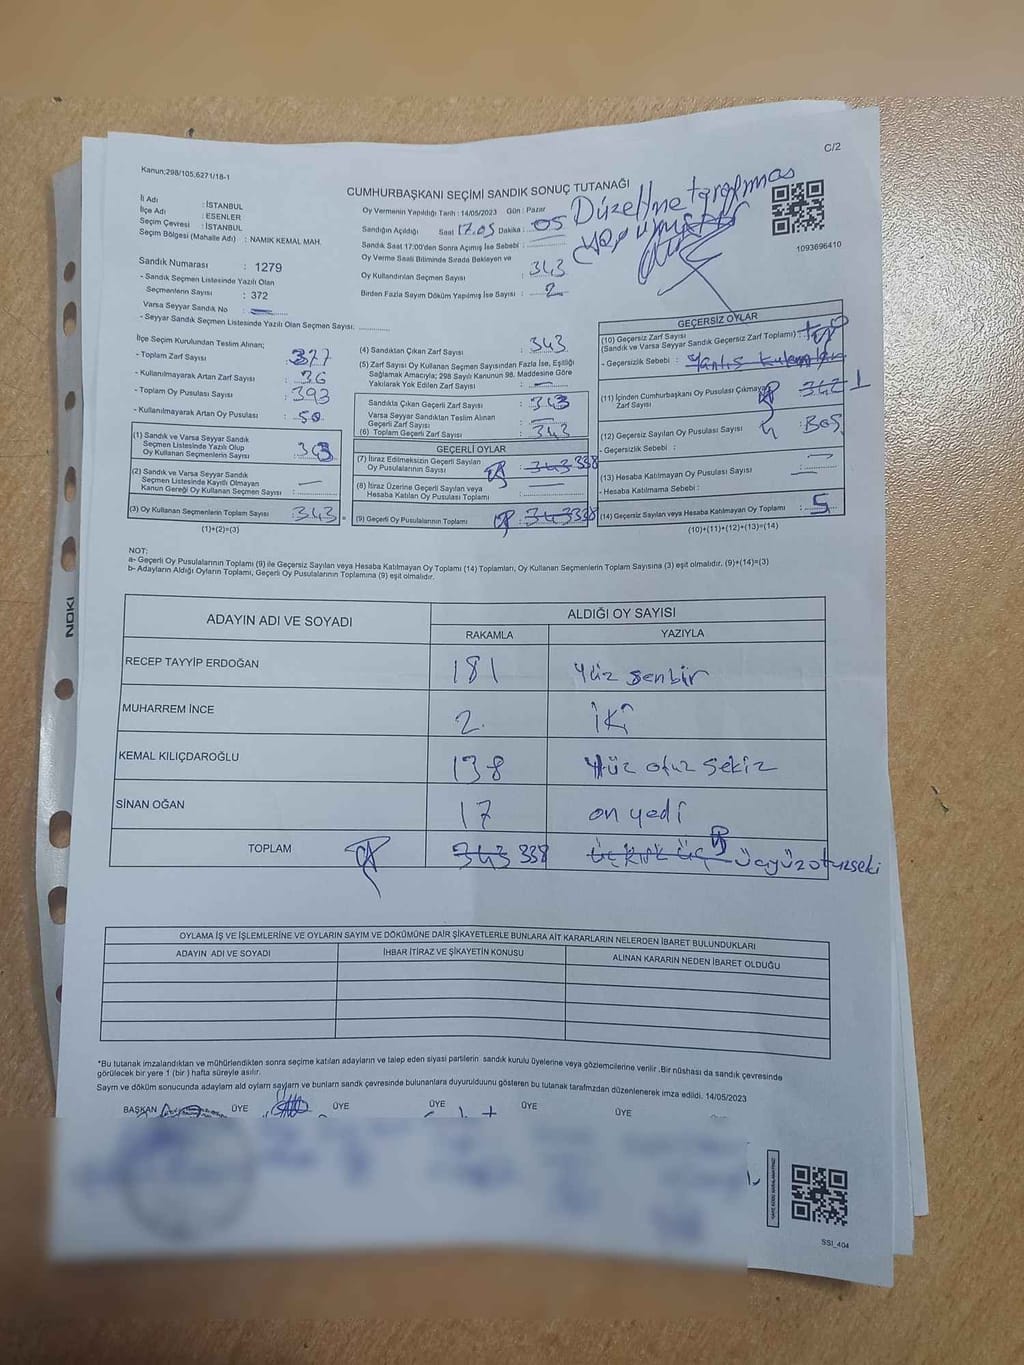 C/2
Kanun;298/105;6271/18-1
CUMHURBAŞKANI SEÇİMİ SANDIK SONUÇ TUTANAĞI
İl Adı : İSTANBUL
İlçe Adı : ESENLER
Seçim Çevresi : İSTANBUL
Seçim Bölgesi (Mahalle Adı) : NAMIK KEMAL MAH.
Oy Vermenin Yapıldığı Tarih : 14/05/2023 Gün : Pazar
Sandığın Açıldığı Saat 17.05 Dakika : 05
Sandık Saat 17:00'den Sonra Açılmış İse Sebebi :
Oy Verme Saati Bitiminde Sırada Bekleyen ve
Oy Kullandırılan Seçmen Sayısı : 343
Birden Fazla Sayım Döküm Yapılmış İse Sayısı : 2
Düzeltme tarafımca
yapılmıştır
1093696410
Sandık Numarası : 1279
- Sandık Seçmen Listesinde Yazılı Olan
Seçmenlerin Sayısı : 372
Varsa Seyyar Sandık No :
- Seyyar Sandık Seçmen Listesinde Yazılı Olan Seçmen Sayısı:
İlçe Seçim Kurulundan Teslim Alınan;
- Toplam Zarf Sayısı : 377
- Kullanılmayarak Artan Zarf Sayısı : 36
- Toplam Oy Pusulası Sayısı : 393
- Kullanılmayarak Artan Oy Pusulası : 50
(1) Sandık ve Varsa Seyyar Sandık
Seçmen Listesinde Yazılı Olup
Oy Kullanan Seçmenlerin Sayısı : 343
(2) Sandık ve Varsa Seyyar Sandık
Seçmen Listesinde Kayıtlı Olmayan
Kanun Gereği Oy Kullanan Seçmen Sayısı :
(3) Oy Kullanan Seçmenlerin Toplam Sayısı : 343
(1)+(2)=(3)
(4) Sandıktan Çıkan Zarf Sayısı : 343
(5) Zarf Sayısı Oy Kullanan Seçmen Sayısından Fazla İse, Eşitliği
Sağlamak Amacıyla; 298 Sayılı Kanunun 98. Maddesine Göre
Yakılarak Yok Edilen Zarf Sayısı :
Sandıkta Çıkan Geçerli Zarf Sayısı : 343
Varsa Seyyar Sandıktan Teslim Alınan
Geçerli Zarf Sayısı :
(6) Toplam Geçerli Zarf Sayısı : 343
GEÇERLİ OYLAR
(7) İtiraz Edilmeksizin Geçerli Sayılan
Oy Pusulalarının Sayısı : 343 338
(8) İtiraz Üzerine Geçerli Sayılan veya
Hesaba Katılan Oy Pusulası Toplamı :
(9) Geçerli Oy Pusulalarının Toplamı : 343 338
GEÇERSİZ OYLAR
(10) Geçersiz Zarf Sayısı
(Sandık ve Varsa Seyyar Sandık Geçersiz Zarf Toplamı) :
- Geçersizlik Sebebi : Yanlış
(11) İçinden Cumhurbaşkanı Oy Pusulası Çıkmayan
Zarf Sayısı : 342 1
(12) Geçersiz Sayılan Oy Pusulası Sayısı 4 : BOŞ
- Geçersizlik Sebebi :
(13) Hesaba Katılmayan Oy Pusulası Sayısı
- Hesaba Katılmama Sebebi :
(14) Geçersiz Sayılan veya Hesaba Katılmayan Oy Toplamı : 5
(10)+(11)+(12)+(13)=(14)
NOT:
a- Geçerli Oy Pusulalarının Toplamı (9) ile Geçersiz Sayılan veya Hesaba Katılmayan Oy Toplamı (14) Toplamları, Oy Kullanan Seçmenlerin Toplam Sayısına (3) eşit olmalıdır. (9)+(14)=(3)
b- Adayların Aldığı Oyların Toplamı, Geçerli Oy Pusulalarının Toplamına (9) eşit olmalıdır.
ADAYIN ADI VE SOYADI ALDIĞI OY SAYISI
RAKAMLA YAZIYLA
RECEP TAYYİP ERDOĞAN 181 Yüz senbir
MUHARREM İNCE 2. İKİ
KEMAL KILIÇDAROĞLU 138 Yüz otuz sekiz
SİNAN OĞAN 17 on yedi
TOPLAM 343 338 Üç kırk üç Üçyüzotuzseki
OYLAMA İŞ VE İŞLEMLERİNE VE OYLARIN SAYIM VE DÖKÜMÜNE DAİR ŞİKAYETLERLE BUNLARA AİT KARARLARIN NELERDEN İBARET BULUNDUKLARI
ADAYIN ADI VE SOYADI İHBAR İTİRAZ VE ŞİKAYETİN KONUSU ALINAN KARARIN NEDEN İBARET OLDUĞU
*Bu tutanak imzalandıktan ve mühürlendikten sonra seçime katılan adayların ve talep eden siyasi partilerin sandık kurulu üyelerine veya gözlemcilerine verilir .Bir nüshası da sandık çevresinde
görülecek bir yere 1 (bir ) hafta süreyle asılır.
Sayım ve döküm sonucunda adayların aldığı oyların sayıları ve bunların sandık çevresinde bulunanlara duyurulduğunu gösteren bu tutanak tarafımızdan düzenlenerek imza edildi. 14/05/2023
BAŞKAN ÜYE ÜYE ÜYE ÜYE ÜYE
SSI_404
NOKI